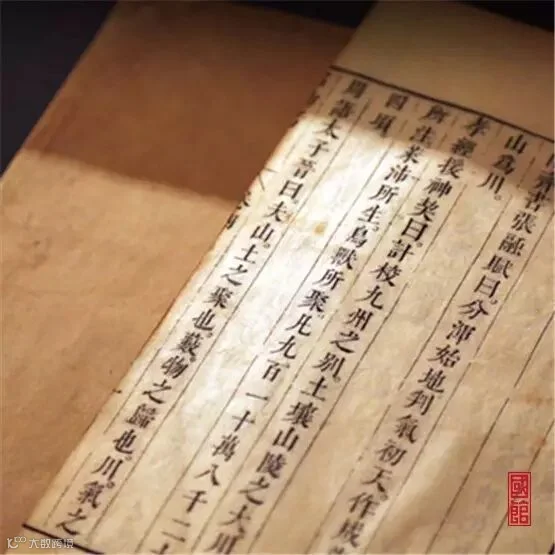 書張融賦曰。分渾始地判氣初天。作成
山爲川。
孝經援神契曰。計校九州之別。土壤山陵之大川
所生萊沛所生。鳥獸所聚。凡九百一十萬八千二十
四頃。
周靈太子晉曰。夫山。土之聚也。藪物之歸也。川。氣之
國館
大数跨境